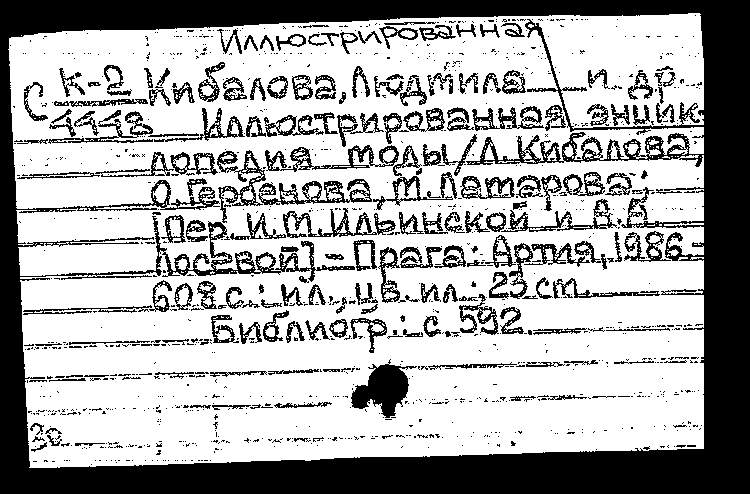 Иллюстрированная
С К-2 Кибалова, Людмила и др.
4448 Иллюстрированная энцик-
лопедия моды/Л. Кибалова,
О. Гербенова, М. Ламарова;
[Пер. И.М. Ильинской и А.А.
Лосевой] - Прага: Артия, 1986.-
608 с.: ил., цв. ил.; 23 см.
Библиогр.: с. 592.
30